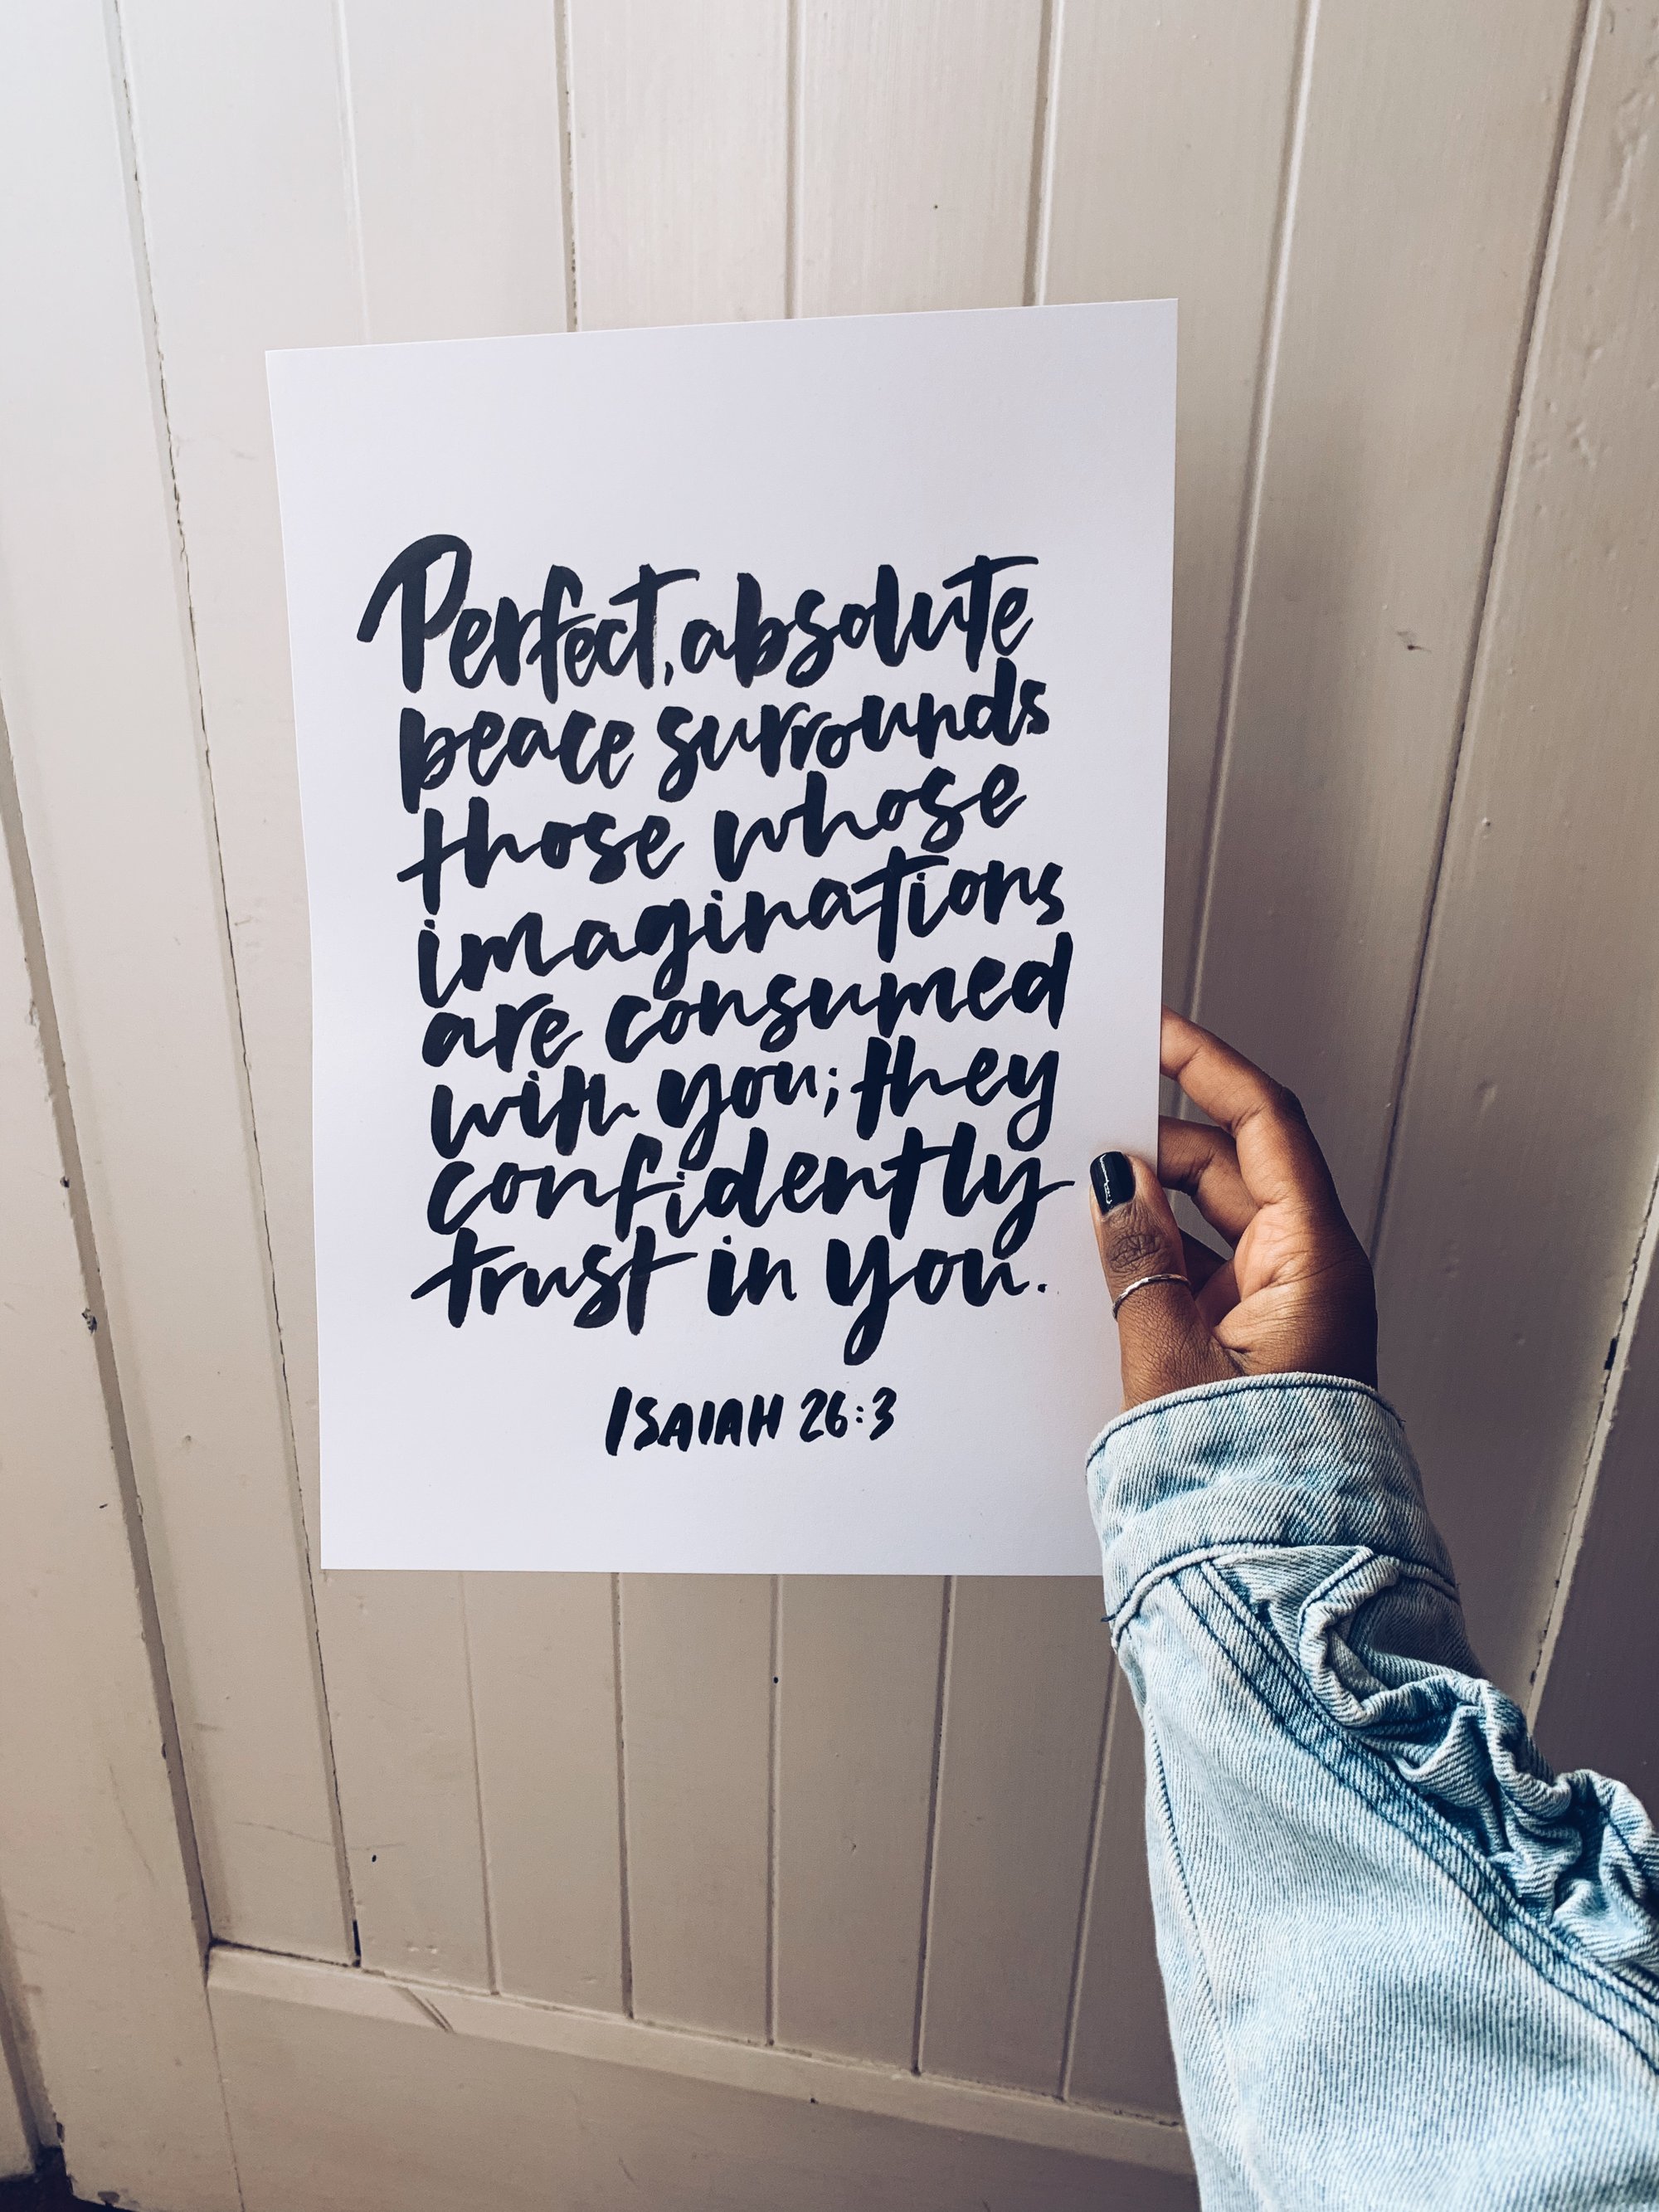 Perfect, absolute
peace surrounds
those whose
imaginations
are consumed
with you; they
confidently
trust in you.
ISAIAH 26:3